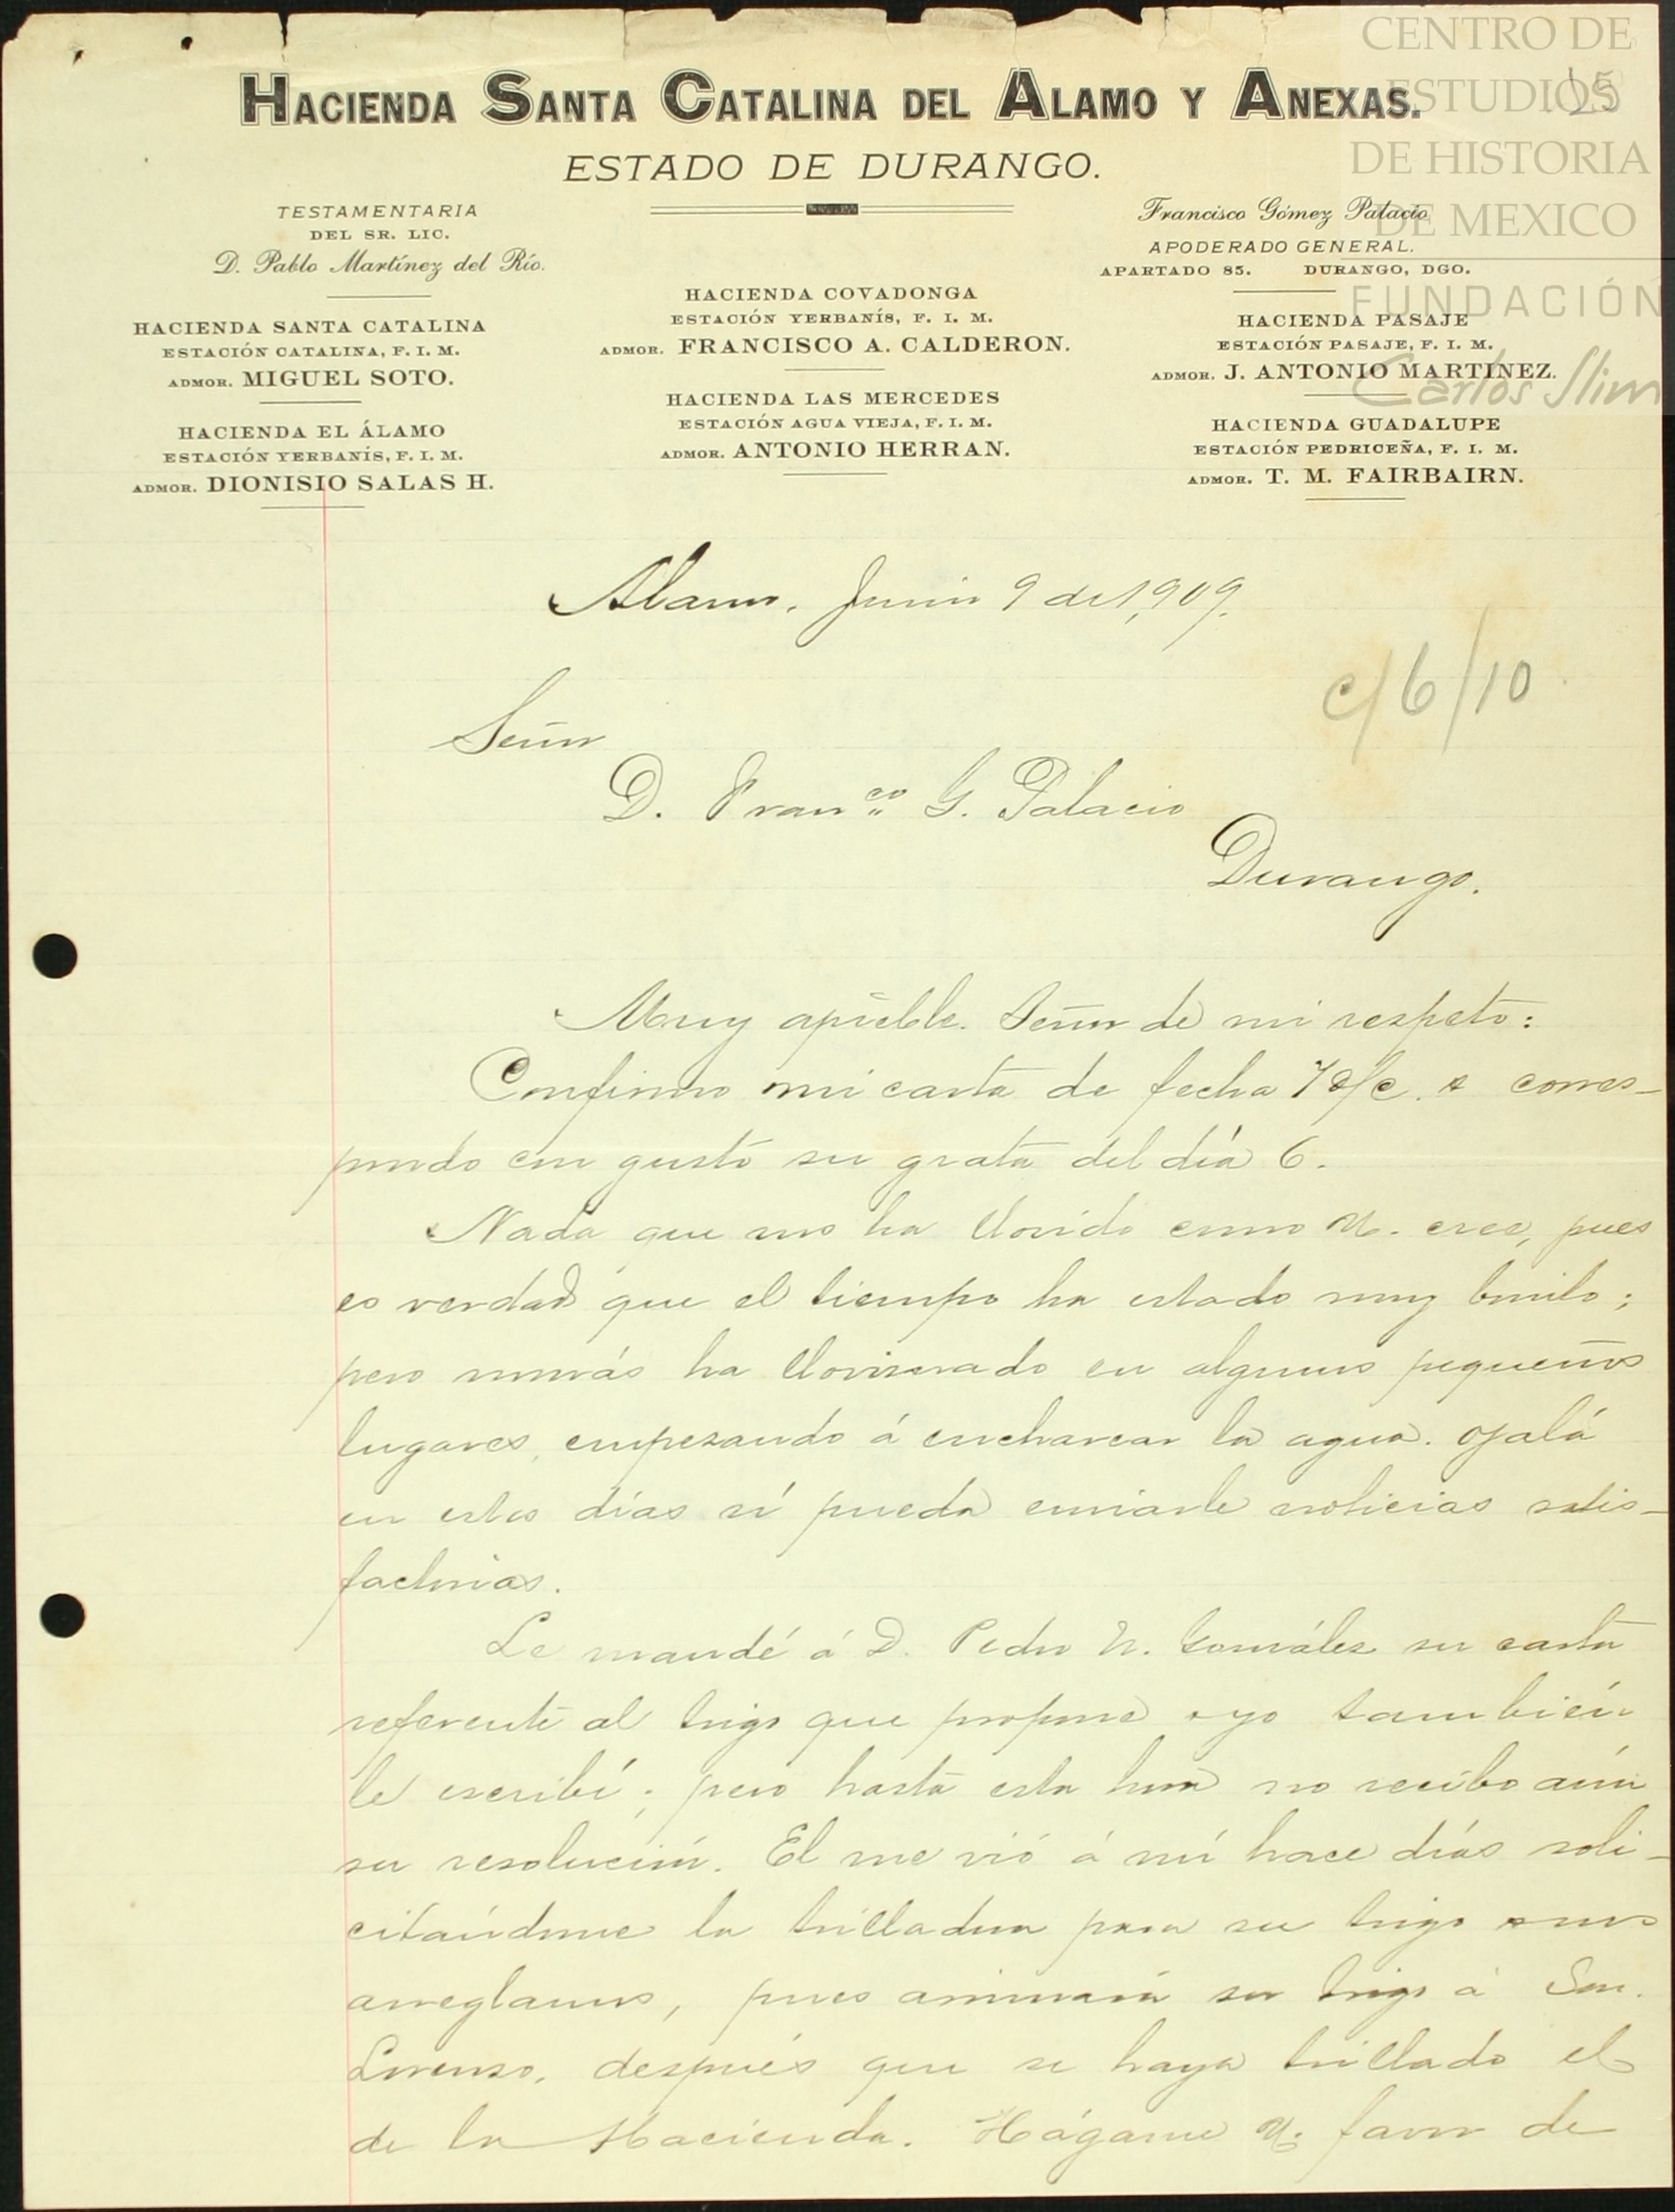 CENTRO DE
ESTUDIOS
DE HISTORIA
DE MEXICO
FUNDACIÓN
Carlos Slim
HACIENDA SANTA CATALINA DEL ALAMO Y ANEXAS.
ESTADO DE DURANGO.
TESTAMENTARIA
DEL SR. LIC.
D. Pablo Martínez del Río.
HACIENDA SANTA CATALINA
ESTACIÓN CATALINA, F. I. M.
ADMOR. MIGUEL SOTO.
HACIENDA EL ÁLAMO
ESTACIÓN YERBANÍS, F. I. M.
ADMOR. DIONISIO SALAS H.
HACIENDA COVADONGA
ESTACIÓN YERBANÍS, F. I. M.
ADMOR. FRANCISCO A. CALDERON.
HACIENDA LAS MERCEDES
ESTACIÓN AGUA VIEJA, F. I. M.
ADMOR. ANTONIO HERRAN.
Francisco Gómez Palacio
APODERADO GENERAL.
APARTADO 85. DURANGO, DGO.
HACIENDA PASAJE
ESTACIÓN PASAJE, F. I. M.
ADMOR. J. ANTONIO MARTÍNEZ.
HACIENDA GUADALUPE
ESTACIÓN PEDRICEÑA, F. I. M.
ADMOR. T. M. FAIRBAIRN.
Alamo. Junio 9 de 1,909.
c/6/10
Señor
D. Franco G. Palacio
Durango.
Muy apreble. Señor de mi respeto:
Confirmo mi carta de fecha 7 o/c. y corres-
pondo con gusto su grata del día 6.
Nada que nos ha llovido como U. cree, pues
es verdad que el tiempo ha estado muy bonito;
pero nomás ha lloviznado en algunos pequeños
lugares, empezando á encharcar la agua. Ojalá
en estos días sí pueda enviarle noticias satis-
factorias.
Le mandé á D. Pedro N. González su carta
referente al trigo que propone y yo también
le escribí; pero hasta esta hora no recibo aún
su resolución. El me vió á mí hace días soli-
citándome la trilladora para su trigo y nos
arreglamos, pues arrimará su trigo á San
Lorenzo, después que se haya trillado el
de la Hacienda. Hágame U. favor de